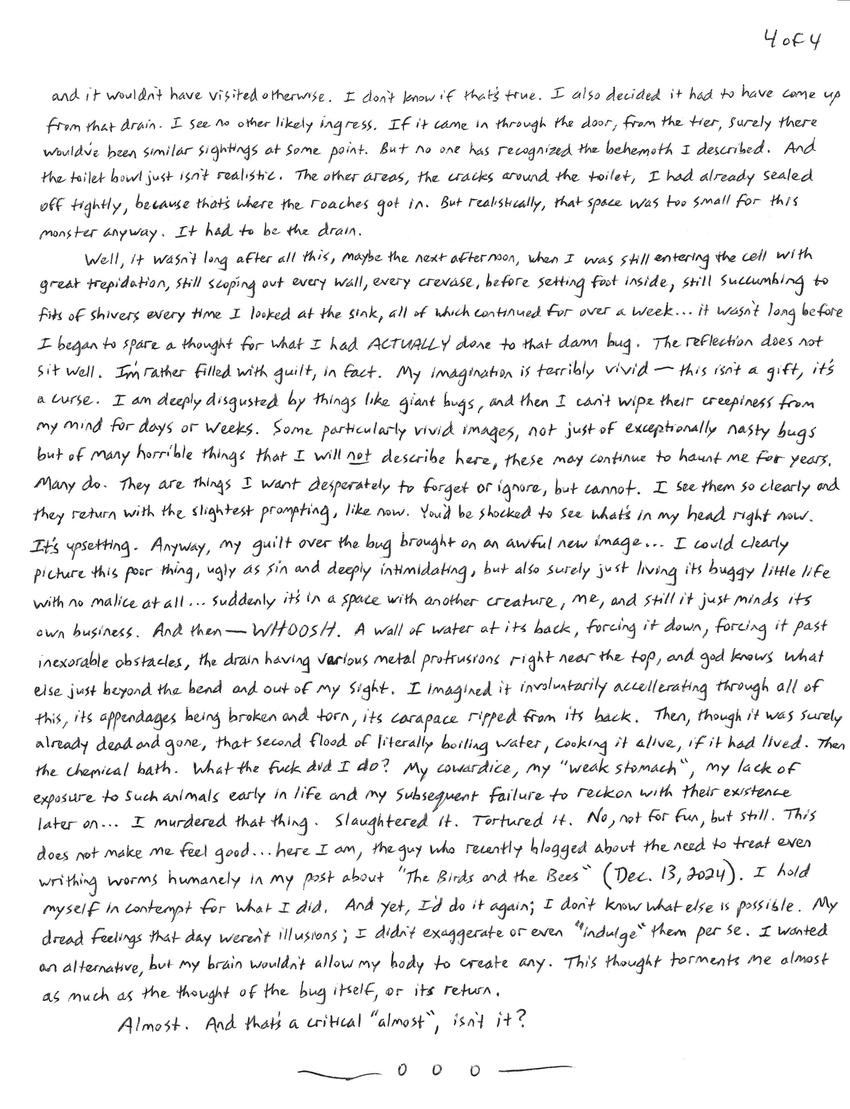 4 of 4
and it wouldn't have visited otherwise. I don't know if that's true. I also decided it had to have come up
from that drain. I see no other likely ingress. If it came in through the door, from the tier, surely there
would've been similar sightings at some point. But no one has recognized the behemoth I described. And
the toilet bowl just isn't realistic. The other areas, the cracks around the toilet, I had already sealed
off tightly, because that's where the roaches got in. But realistically, that space was too small for this
monster anyway. It had to be the drain.
Well, it wasn't long after all this, maybe the next afternoon, when I was still entering the cell with
great trepidation, still scoping out every wall, every crevase, before setting foot inside, still succumbing to
fits of shivers every time I looked at the sink, all of which continued for over a week... it wasn't long before
I began to spare a thought for what I had ACTUALLY done to that damn bug. The reflection does not
sit well. I'm rather filled with guilt, in fact. My imagination is terribly vivid — this isn't a gift, it's
a curse. I am deeply disgusted by things like giant bugs, and then I can't wipe their creepiness from
my mind for days or weeks. Some particularly vivid images, not just of exceptionally nasty bugs
but of many horrible things that I will not describe here, these may continue to haunt me for years.
Many do. They are things I want desperately to forget or ignore, but cannot. I see them so clearly and
they return with the slightest prompting, like now. You'd be shocked to see what's in my head right now.
It's upsetting. Anyway, my guilt over the bug brought on an awful new image... I could clearly
picture this poor thing, ugly as sin and deeply intimidating, but also surely just living its buggy little life
with no malice at all... suddenly it's in a space with another creature, me, and still it just minds its
own business. And then — WHOOSH. A wall of water at its back, forcing it down, forcing it past
inexorable obstacles, the drain having various metal protrusions right near the top, and god knows what
else just beyond the bend and out of my sight. I imagined it involuntarily accellerating through all of
this, its appendages being broken and torn, its carapace ripped from its back. Then, though it was surely
already dead and gone, that second flood of literally boiling water, cooking it alive, if it had lived. Then
the chemical bath. What the fuck did I do? My cowardice, my "weak stomach", my lack of
exposure to such animals early in life and my subsequent failure to reckon with their existence
later on... I murdered that thing. Slaughtered it. Tortured it. No, not for fun, but still. This
does not make me feel good... here I am, the guy who recently blogged about the need to treat even
writhing worms humanely in my post about "The Birds and the Bees" (Dec. 13, 2024). I hold
myself in contempt for what I did. And yet, I'd do it again; I don't know what else is possible. My
dread feelings that day weren't illusions; I didn't exaggerate or even "indulge" them per se. I wanted
an alternative, but my brain wouldn't allow my body to create any. This thought torments me almost
as much as the thought of the bug itself, or its return.
Almost. And that's a critical "almost", isn't it?